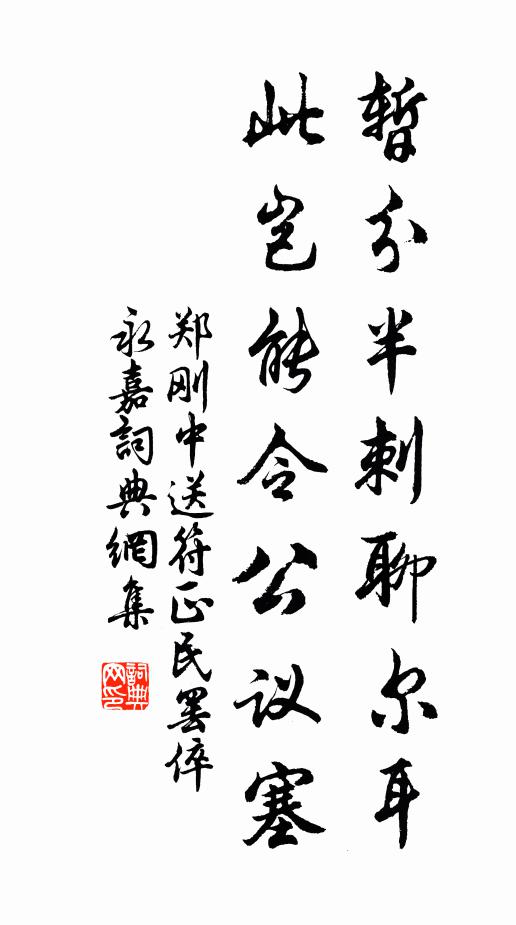 暂分半刺聊尔耳
此岂能令公议塞
郑刚中送符正民罢倅
永嘉詞典網集
詞典网印